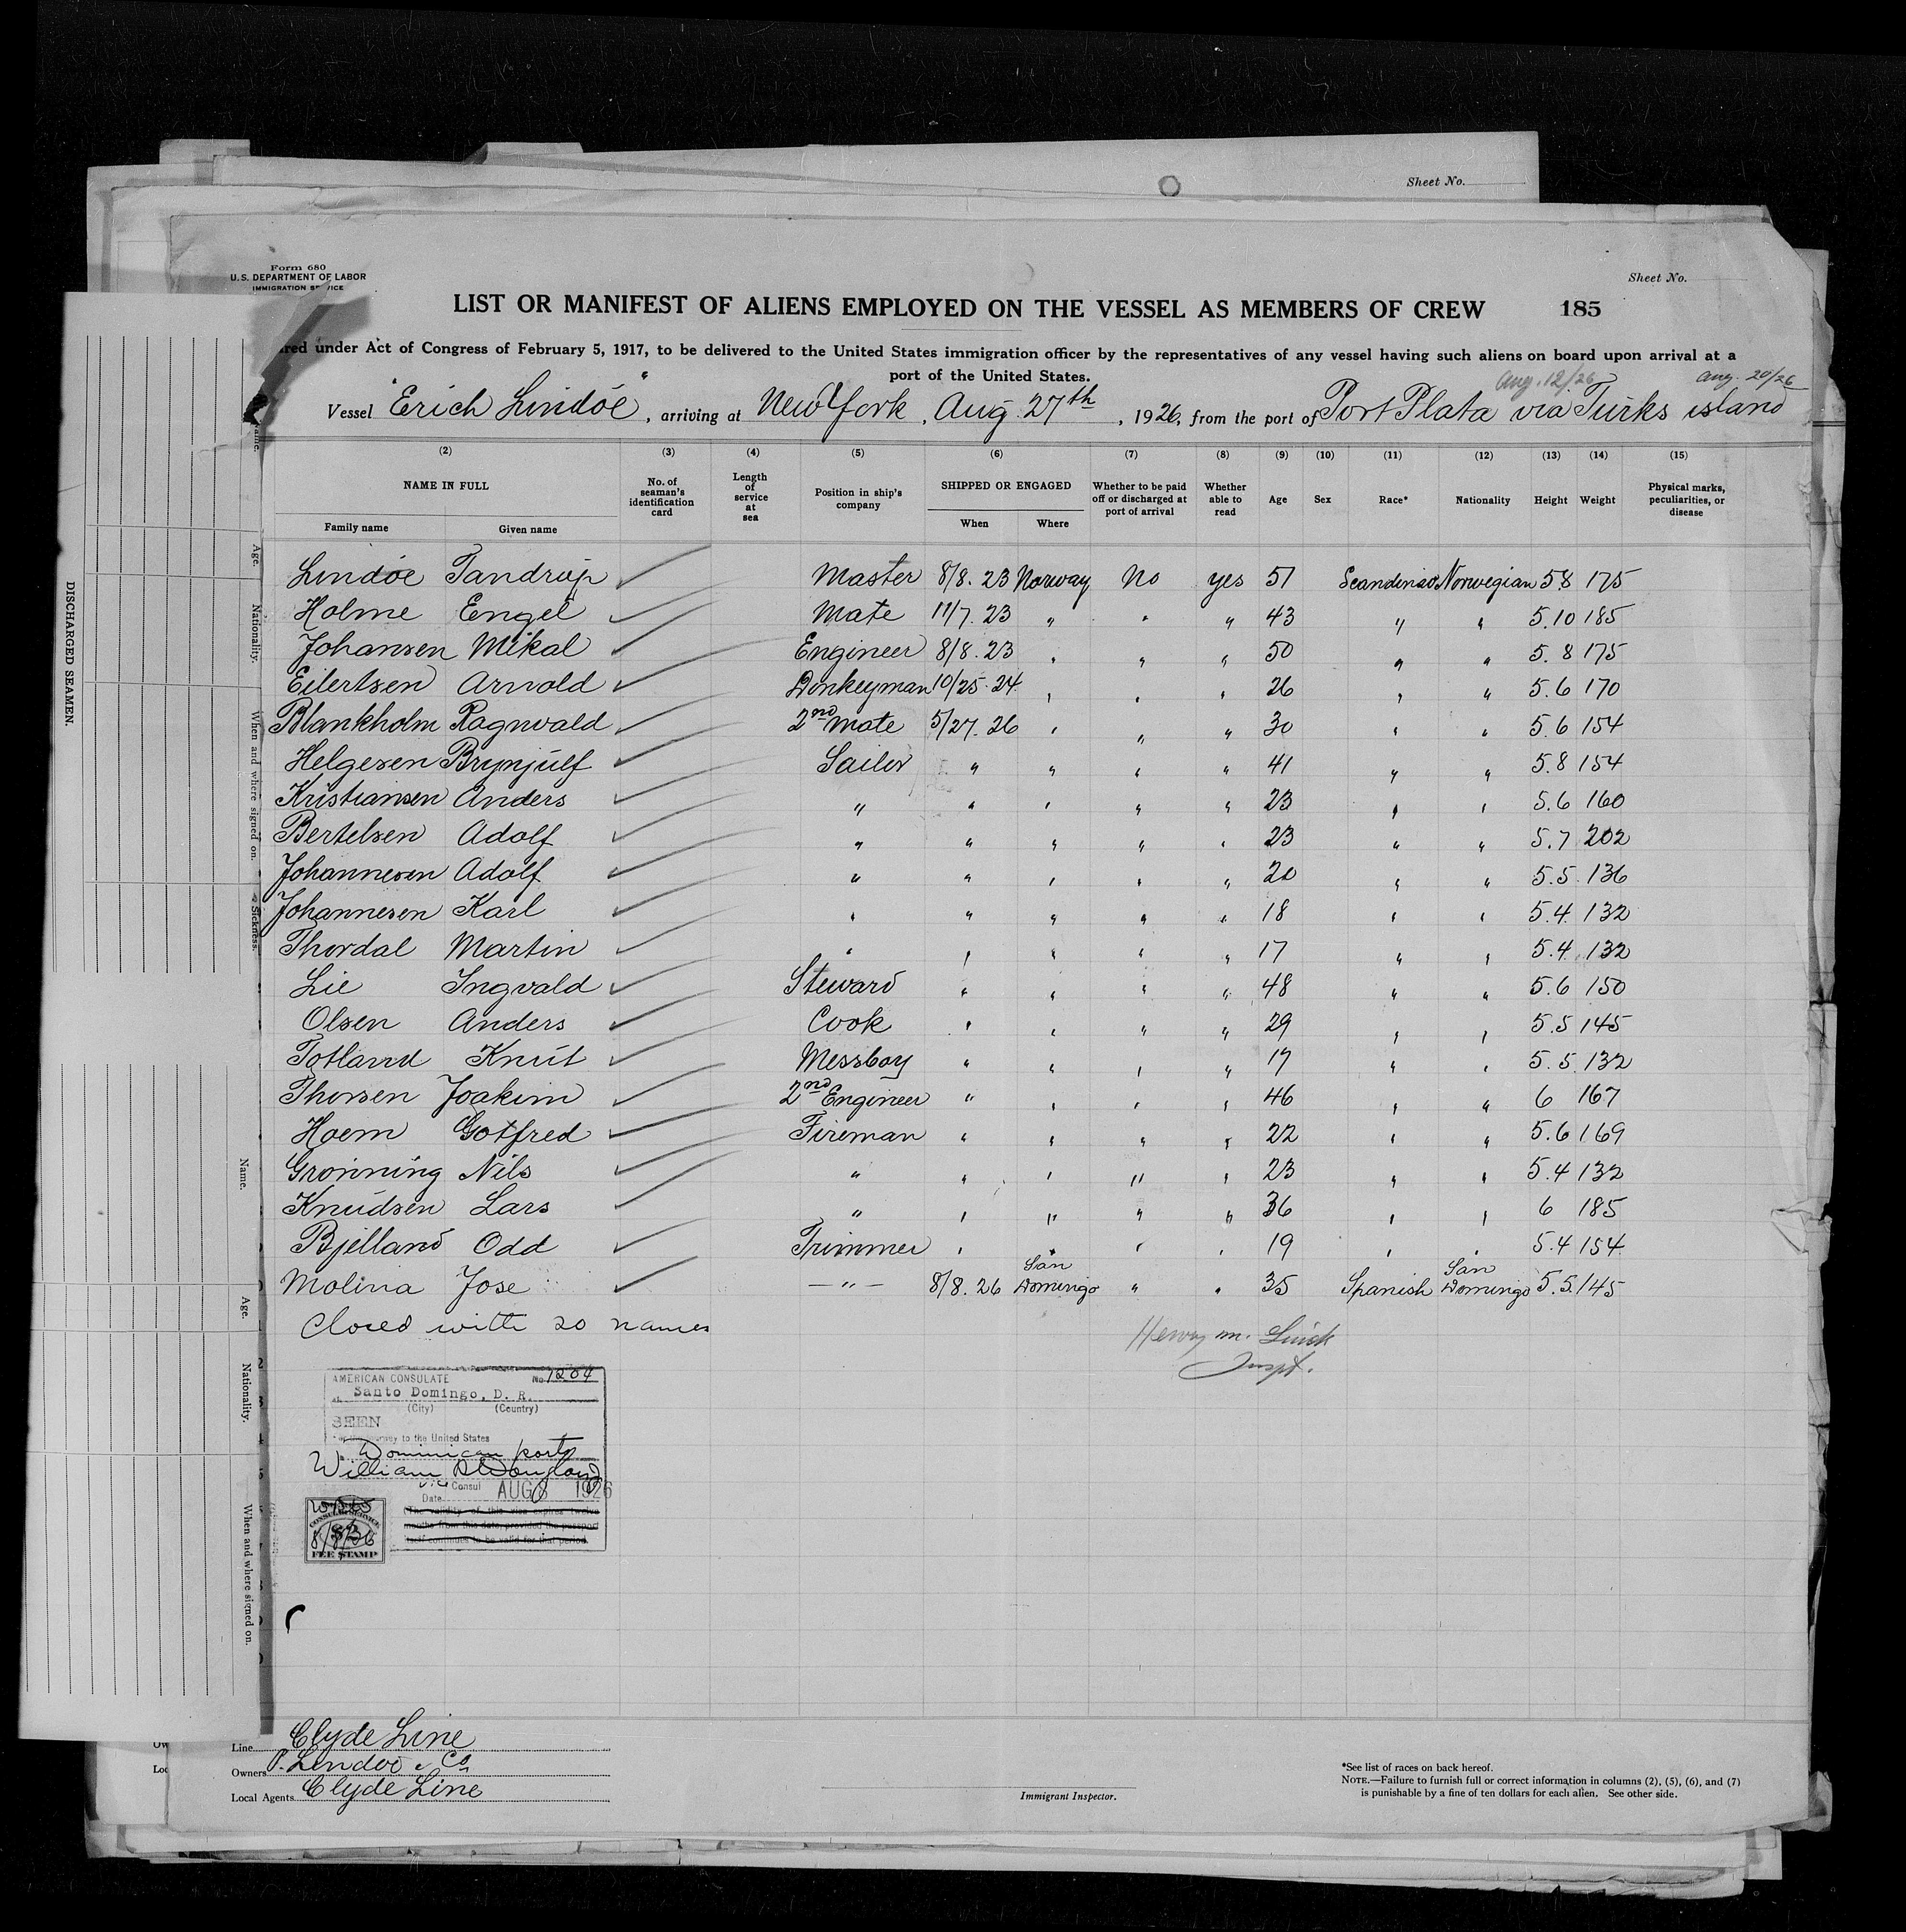 Sheet No.
Form 680
U. S. DEPARTMENT OF LABOR
IMMIGRATION SERVICE
Sheet No.
LIST OR MANIFEST OF ALIENS EMPLOYED ON THE VESSEL AS MEMBERS OF CREW 185
ired under Act of Congress of February 5, 1917, to be delivered to the United States immigration officer by the representatives of any vessel having such aliens on board upon arrival at a
port of the United States.
Aug. 12/26 Aug. 20/26
Vessel "Erich Lindöe", arriving at New York, Aug. 27th, 1926, from the port of Port Plata via Turks island
(2) (3) (4) (5) (6) (7) (8) (9) (10) (11) (12) (13) (14) (15)
NAME IN FULL No. of seaman's identification card Length of service at sea Position in ship's company SHIPPED OR ENGAGED Whether to be paid off or discharged at port of arrival Whether able to read Age Sex Race* Nationality Height Weight Physical marks, peculiarities, or disease
Family name Given name When Where
Lindöe Tandrup Master 8/8. 23 Norway No yes 51 Scandinav Norwegian 5.8 175
Holme Engel Mate 11/7. 23 " " " 43 " " 5.10 185
Johansen Mikal Engineer 8/8. 23 " " " 50 " " 5. 8 175
Eilertsen Arnold Donkeyman 10/25. 24 " " " 26 " " 5. 6 170
Blankholm Ragnvald 2nd Mate 5/27. 26 " " " 30 " " 5. 6 154
Helgesen Brynjulf Sailor " " " " 41 " " 5.8 154
Kristiansen Anders " " " " " 23 " " 5.6 160
Bertelsen Adolf " " " " " 23 " " 5.7 202
Johannesen Adolf " " " " " 20 " " 5.5. 136
Johannesen Karl " " " " " 18 " " 5.4. 132
Thordal Martin " " " " " 17 " " 5.4. 132
Lie Ingvald Steward " " " " 48 " " 5.6 150
Olsen Anders Cook " " " " 29 " " 5.5 145
Totland Knut Messboy " " " " 17 " " 5.5. 132
Thorsen Joakim 2nd Engineer " " " " 46 " " 6 167
Hoem Gotfred Fireman " " " " 22 " " 5.6 169
Gronning Nils " " " " " 23 " " 5.4 132
Knudsen Lars " " " " " 36 " " 6 185
Bjelland Odd Trimmer " " " " 19 " " 5.4 154
Molina Jose — " — 8/8. 26 San Domingo " " 35 Spanish San Domingo 5.5. 145
Closed with 20 names
Henry M.
Inspt.
AMERICAN CONSULATE No 1204
at Santo Domingo, D. R.
(City) (Country)
SEEN
For the journey to the United States
Dominican ports
William
Vice Consul AUG 8 1926
Date
The validity of this visa expires twelve
months from this date, provided the passport
itself continues to be valid for that period.
CONSULAR SERVICE
8/8/26
FEE STAMP
Line Clyde Line
Owners P. Lindöe & Co
Local Agents Clyde Line
Immigrant Inspector.
*See list of races on back hereof.
NOTE.—Failure to furnish full or correct information in columns (2), (5), (6), and (7)
is punishable by a fine of ten dollars for each alien. See other side.
DISCHARGED SEAMEN.
Name.
Age.
Nationality.
When and where signed on.
Sickness.
Name.
Age.
Nationality.
When and where signed on.